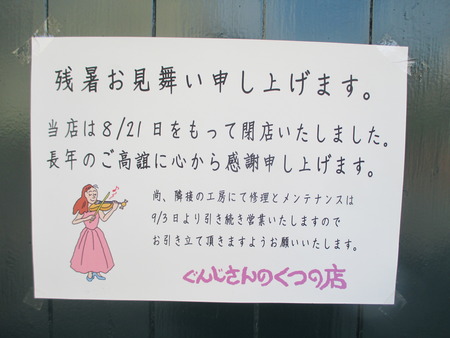 残暑お見舞い申し上げます。
当店は8/21日をもって閉店いたしました。
長年のご高誼に心から感謝申し上げます。
尚、隣接の工房にて修理とメンテナンスは
9/3日より引き続き営業いたしますので
お引き立て頂きますようお願いいたします。
ぐんじさんのくつの店